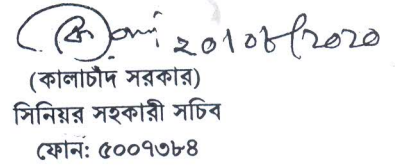 ২০/০৮/২০২০
(কালাচাঁদ সরকার)
সিনিয়র সহকারী সচিব
ফোন: ৫০০৭৩৮৪